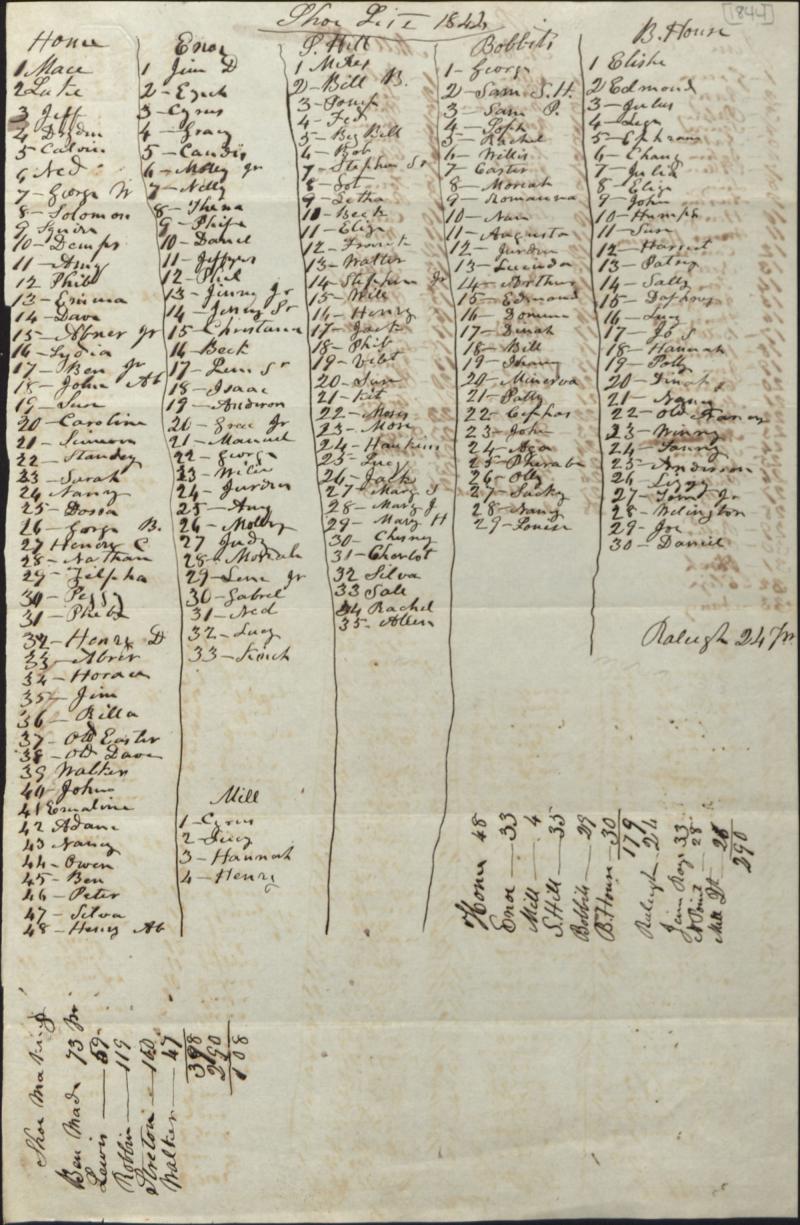 Shoe List 1844
[1844]
Home
1 Mace
2 Luke
3 Jeff
5 Calvin
6 Ned
7 - George W
8 - Solomon
9 Squire
10 - Demps
11 - Amy
12 Phil
13 - Emma
14 - Dave
15 - Abner Jr
16 - Lydia
17 - Ben Jr
18 - John Ab
19 - Sue
20 - Caroline
21 - Simeon
22 - Standley
23 - Sarah
24 Nancy
25 - Dossa
26 - George B.
27 Henry C
28 - Nathan
29 - Zilpha
30 - Peggy
31 - Phebe
32 - Henry D
33 - Abner
34 - Horace
35 - Jim
36 - Rilla
37 - Old Easter
38 - Old Dave
39 Walker
40 - John
41 Emaline
42 Adam
43 Nancy
44 - Owen
45 - Ben
46 - Peter
47 - Silva
48 - Henry Ab
Enoe
1 Jim D
2 - Esack
3 - Cyrus
4 - Gracy
5 - Candis
6 - Molley Jr
7 - Nelly
8 - Thena
9 - Philip
10 - Daniel
11 - Jeffrys
12 - Phil
13 - Jinny Jr
14 - Jenny Sr
15 - Christiana
16 - Beck
17 - Lem Sr
18 - Isaac
19 - Anderson
20 - Grace Jr
21 - Manuel
22 - George
23 - Wilie
24 - Jurden
25 - Amy
26 - Molley
27 Judy
28 - Moriah
29 - Lem Jr
30 - Gabrel
31 - Ned
32 - Lucy
33 -
Mill
1 - Cyrus
2 - Lucy
3 - Hannah
4 - Henry
S. Hill
1 Moses
2 - Bill B.
3 - Josef
4 - Fed
5 - Big Bill
6 - Bob
7 - Stephen Sr
8 - Lot
9 - Letha
10 - Beck
11 - Eliza
12 - Frank
13 - Walter
14 - Stephen Jr
15 - Will
16 - Henry
17 - Jack
18 - Phil
19 - Vilet
20 - Sue
21 - Kit
22 - Moses
23 - Mose
24 - Hawkins
25 - Lucy
26 - Jack
27 - Mary S
28 - Mary J
29 - Mary H
30 - Chesney
31 - Charlot
32 Silva
33 Sall
34 Rachel
35 - Allen
Bobbits
1 - George
2 - Sam S. H.
3 - Sam P.
4 - Soph
5 - Rachel
6 - Willis
7 - Easter
8 - Moriah
9 - Romanna
10 - Nan
11 - Augusta
12 - Jurden
13 - Lucinda
14 - Arthur
15 - Edmond
16 -
17 - Dinah
18 - Bill
19 - Shany
20 - Minerva
21 - Patty
22 - Cephas
23 - John
24 - Aga
25 - Pheraba
26 - Olly
27 - Sucky
28 - Nancy
29 - Louisa
B. House
1 Elisha
2 Edmond
3 - Julus
4 -
5 - Ephram
6 - Chany
7 - Julia
8 - Eliza
9 - John
10 - Humps
11 - Sue
12 - Harriet
13 - Patsy
14 - Sally
15 - Daphney
16 - Lucy
17 - Jo S
18 - Hannah
19 - Polly
20 - Dinah
21 - Nancy
22 - Old Fanny
23 - Winny
24 - Fanny
25 - Anderson
26 - Lizzy
27 - Tom Jr
28 - Welington
29 - Joe
30 - Daniel
Raleigh 24 Pr
Home 48
Enoe — 33
Mill — 4
S. Hill — 35
Bobbits — 29
B. House — 30
179
Raleigh — 24
Jim Rays 33
— 28
Mill — 26
290
Shoe Making
Ben Made 73 pr
Lewis — 59
Robbin — 119
Streton — 100
Walker — 47
398
290
108